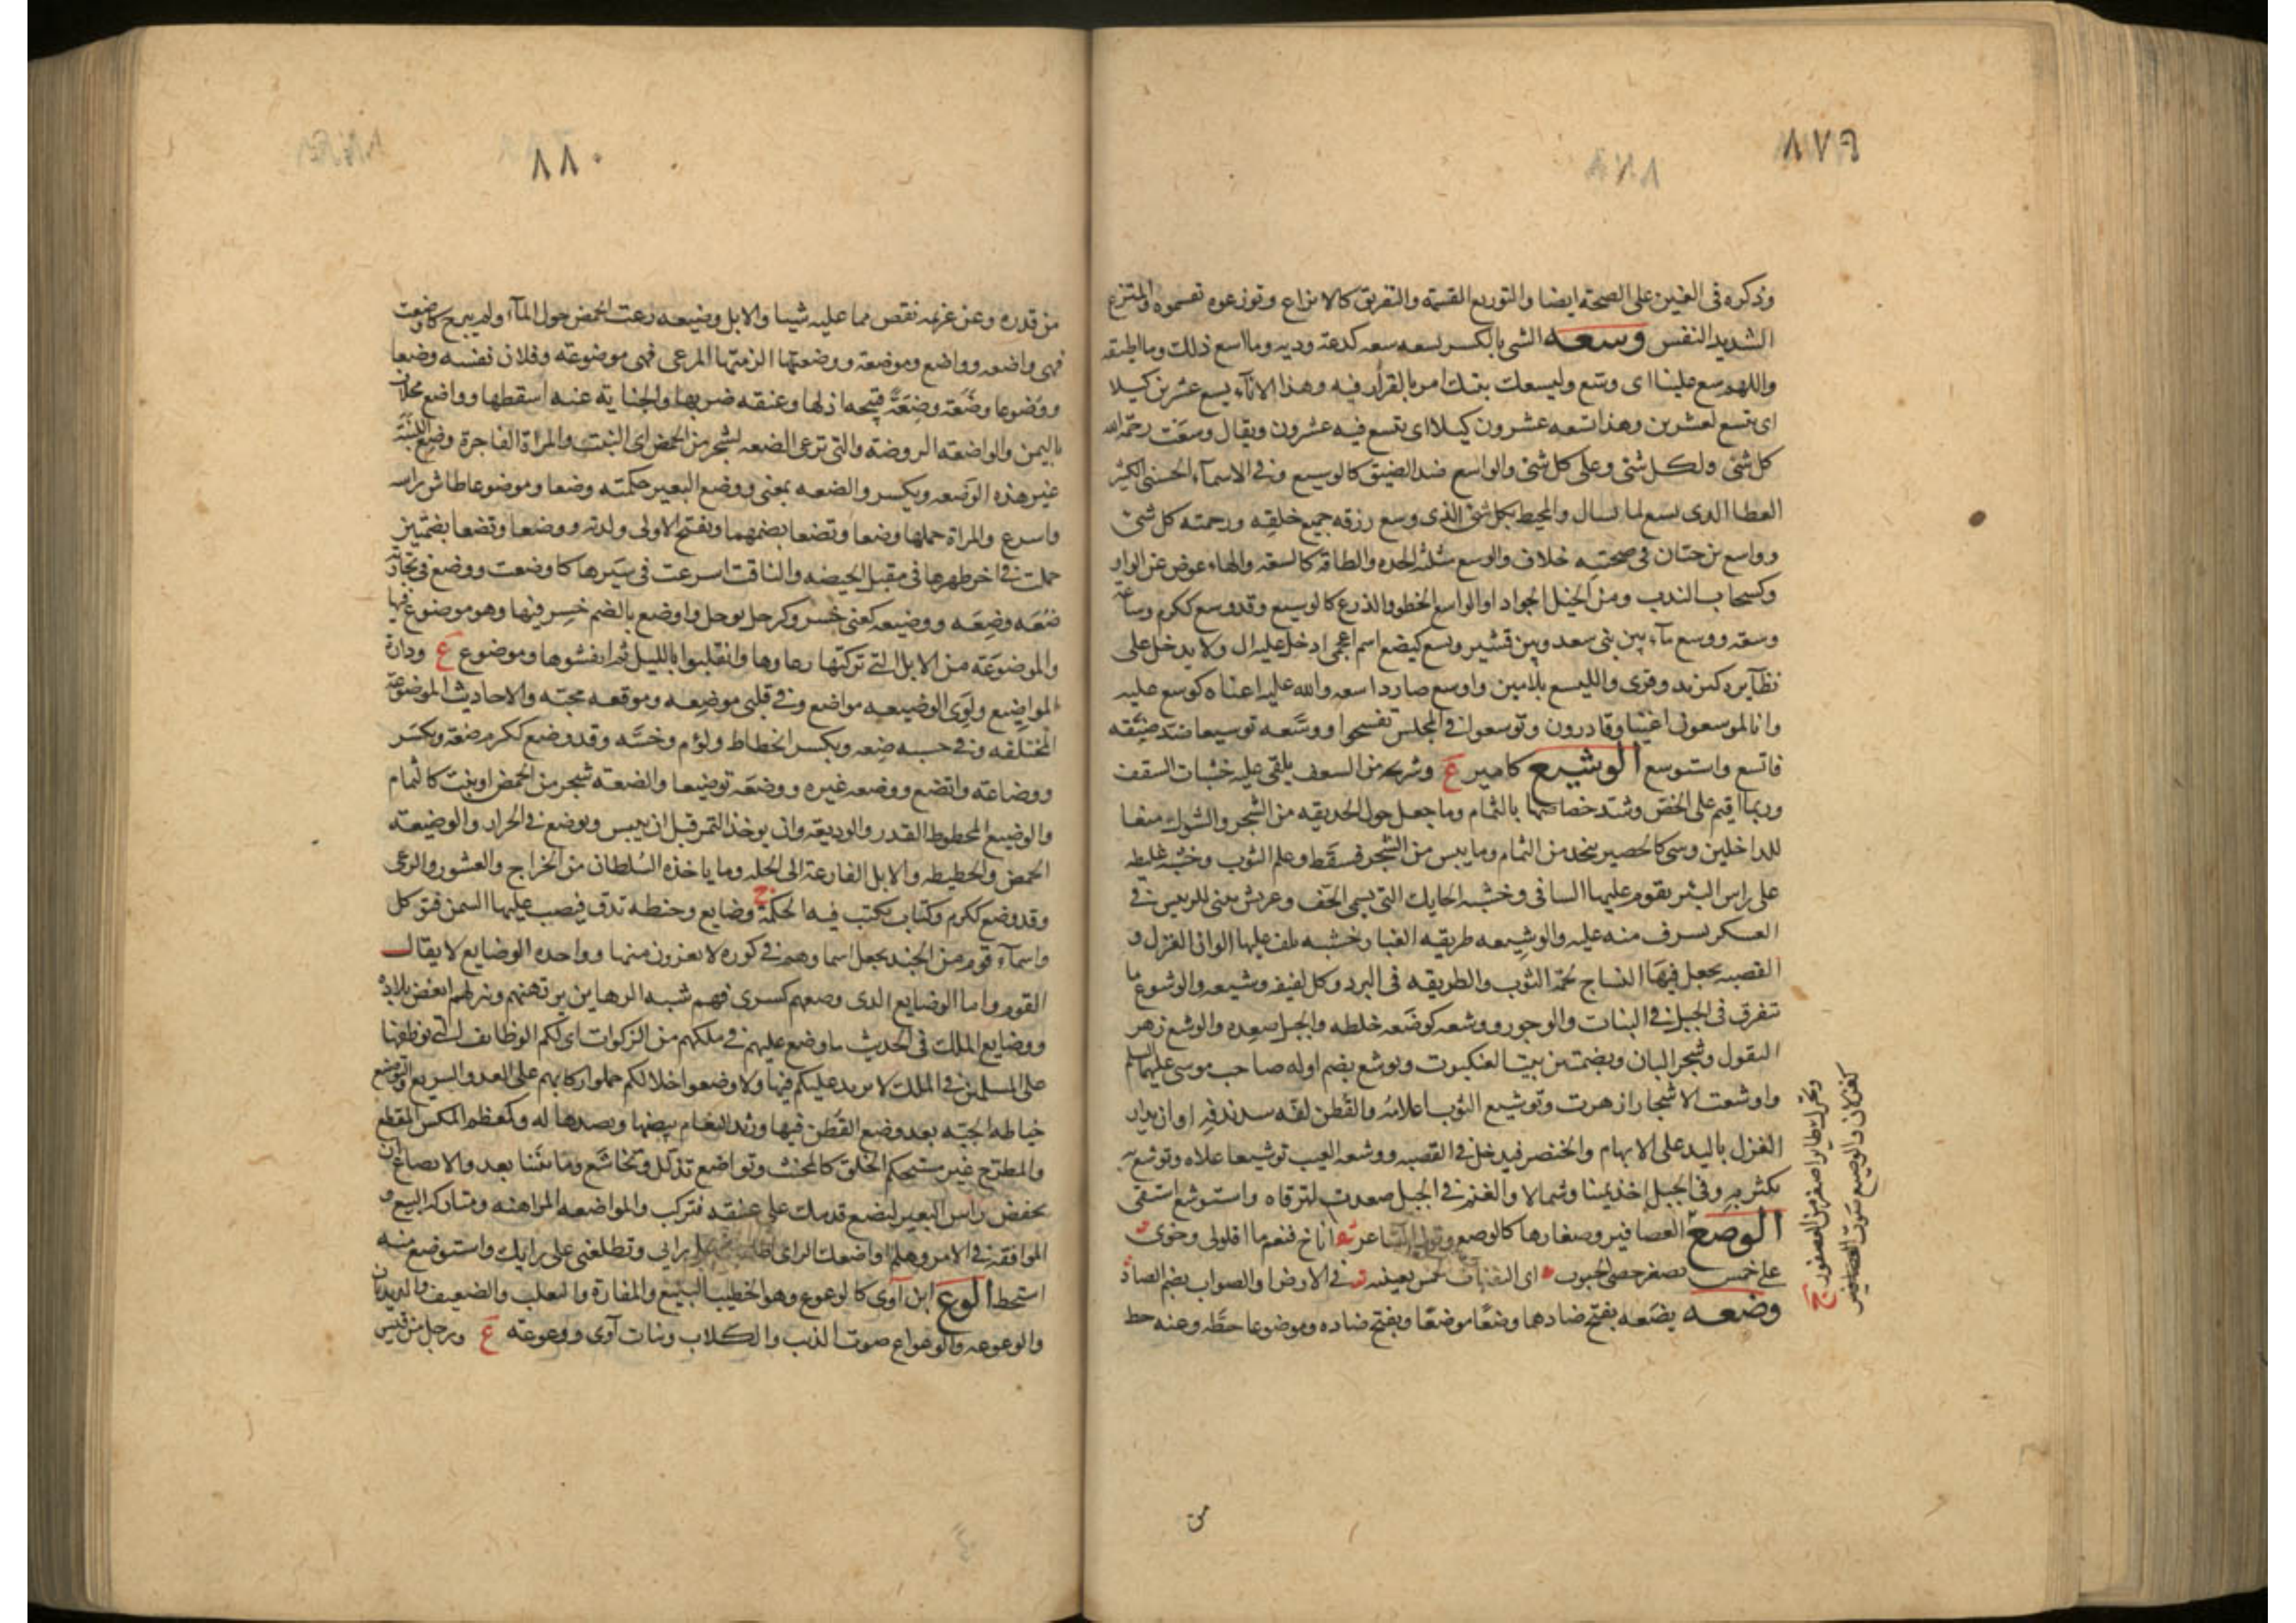 ٨٧٩
وذكره في الغين على الصحة ايضا والتوزيع القسمة والتفريق كالايزاع وتوزعوه تقسموه والمتزع
الشديد النفس وسعه الشي بالكسر يسعه سعه كدعة ودية وما اسع ذلك وما اطيقه
واللهم سع علينا اى وسع وليسعك بيتك امر بالقرار فيه وهذا الاناء يسع عشرين كيلا
اى يتسع لعشرين وهذا يسعه عشرون كيلا اى يتسع فيه عشرون ويقال وسعت رحمة الله
كل شئ ولكل شئ وعلى كل شئ والواسع ضد الضيق كالوسيع وفى الاسماء الحسنى الكثير
العطا الذى يسع لما يسال والمحيط بكل شئ الذى وسع رزقه جميع خلقه ورحمته كل شئ
وواسع بن حبان فى صحبته خلاف والوسع مثلثة الجده والطاقه كالسعه والهاء عوض عن الواو
وكسحاب الندب ومن الخيل الجواد او الواسع الخطو والذرع كالوسيع وقد وسع ككرم وساعة
وسعه ووسع ماء بين بنى سعد وبين قشير ويسع كيضع اسم اعجمى ادخل عليه ال ولا يدخل على
نظايره كيزيد وقرى والليسع بلامين واوسع صار ذا سعه والله عليه اغناه كوسع عليه
وانا لموسعون اغنيا وقادرون وتوسعوا فى المجلس تفسحوا ووسعه توسيعا ضد ضيقه
فاتسع واستوسع الوشيع كامير ع وشريحه من السعف يلقى عليه خشبات السقف
وربما اقيم على الخص وشد خصاصها بالثمام وما جعل حول الحديقه من الشجر والشوك منعا
للداخلين وشى كالحصير يتخذ من الثمام وما يبس من الشجر فسقط وعلم الثوب وخشبة غليظه
على راس البئر يقوم عليها الساقى وخشبه الحايك التى يسمى الحف وعريش يبنى للرييس فى
العسكر يسرف منه عليه والوشيعه طريقه الغبار وخشبه يلف عليها الوان الغزل و
القصبه يجعل فيها النساج لحمة الثوب والطريقه فى البرد وكل لفيفه وشيعه والوشوع ما
تفرق فى الجبل من النبات والوجور ووشعه كوضعه خلطه والجبل صعده والوشع زهر
البقول وشجر البان وبضمتين بيت العنكبوت ويوشع بضم اوله صاحب موسى عليهما السلم
واوشعت الاشجار ازهرت وتوشيع الثوب اعلامه والقطن لفه بعد ندفه او ان يدار
الغزل باليد على الابهام والخنصر فيدخل فى القصبه ووشعه الشيب توشيعا علاه وتوشع به
تكثر به وفى الجبل اخذ يمينا وشمالا والغنم فى الجبل صعدت لترقاه واستوشع استقى
الوصع العصافير وصغارها كالوصع وقول الشاعر اناخ فنعم ما اقلولى وخوى
على خمس يصغر حصى الجبوب اى الثفنات لخمس بعينه فى الارض والصواب بضم الصاد
وضعه يضعه بفتح ضادها وضعا موضعا ويفتح ضاده وموضوعا حطه وعنه حط
ويحرك طاير اصغر من العصفور ج
كغزلان والوصيع صوت العصافير
من
٨٨٠
من قدره وعن غريمه نقص مما عليه شيا والابل وضيعه رعت الحمض حول الماء ولم يبرح كاوضعت
فهى واضعه وواضع وموضعة ووضعتها الزمتها المرعى فهى موضوعة وفلان نفسه وضعا
ووضوعا وضعة وضعة قبيحه اذلها وعنقه ضربها والجناية عنه اسقطها وواضع مخلاف
باليمن والواضعة الروضة والتى ترعى الضعه لشجر من الحمض اى النبت والمرأة الفاجرة وضع اللبنة
غير هذه الوضعه ويكسر والضعه بمعنى ووضع البعير حكمته وضعا وموضوعا طاش راسه
واسرع والمراة حملها وضعا وتضعا بضمهما وتفتح الاولى ولدته ووضعا وتضعا بضمتين
حملت فى اخر طهرها فى مقبل الحيضه والناقة اسرعت فى سيرها كاوضعت ووضع فى تجارته
ضعه وضعه ووضيعه كعنى خسر وكوجل يوجل واوضع بالضم خسر فيها وهو موضوع فيها
والموضوعة من الابل التى تركتها رعاوها وانقلبوا بالليل ثم انفشوها وموضوع ع ودارة
المواضيع ولوى الوضيعه مواضع وفى قلبى موضعه وموقعه محبه والاحاديث الموضوعة
المختلقه وفى حسبه ضعه ويكسر انحطاط ولؤم وخسه وقد وضع ككرم ضعة ويكسر
ووضاعة واتضع ووضعه غيره ووضعه توضيعا والضعة شجر من الحمض او نبت كالثمام
والوضيع المحطوط القدر والوديعة وان يوخذ التمر قبل ان ييبس ويوضع فى الجرار والوضيعة
الحمض والحطيطه والابل الفارعة الى الخله وما ياخذه السلطان من الخراج والعشور والدعى
وقد وضع ككرم وكتاب يكتب فيه الحكمة ج وضايع وحنطه تدق فيصب عليها السمن فتوكل
واسماء قوم من الجند يجعل اسما وهم فى كوره لا يغزون منها وواحده الوضايع لا يقال
القوم واما الوضايع الذى وضعهم كسرى فهم شبه الرهاين يرتهنهم وينزلهم بعض بلاده
ووضايع الملك فى الحديث ما وضع عليهم فى ملكهم من الزكوات اى لكم الوظايف التى نوظفها
على المسلمين فى الملك لا نزيد عليكم فيها ولا وضعوا خلالكم حملوا ركابهم على العدو السريع والتوضيع
خياطه الجبه بعد وضع القطن فيها ورثد النعام بيضها ونضدها له وكمعظم المكسر المقطع
والمطرح غير مستحكم الخلق كالمخنث وتواضع تذلل وتخاشع وما بيننا بعد والاتضاع ان
تخفض راس البعير لتضع قدمك على عنقه فتركب والمواضعه المراهنه ومتاركه البيع و
الموافقه فى الامر وهلم اواضعك الراى اطلعك على رايى وتطلعنى على رايك واستوضع منه
استحط الوع ابن آوى كالوعوع وهو الخطيب البليغ والمفازة والثعلب والضعيف والديدبان
والوعوعه والوعواع صوت الذيب والكلاب وبنات آوى ووعوعة ع ورجل من قيس